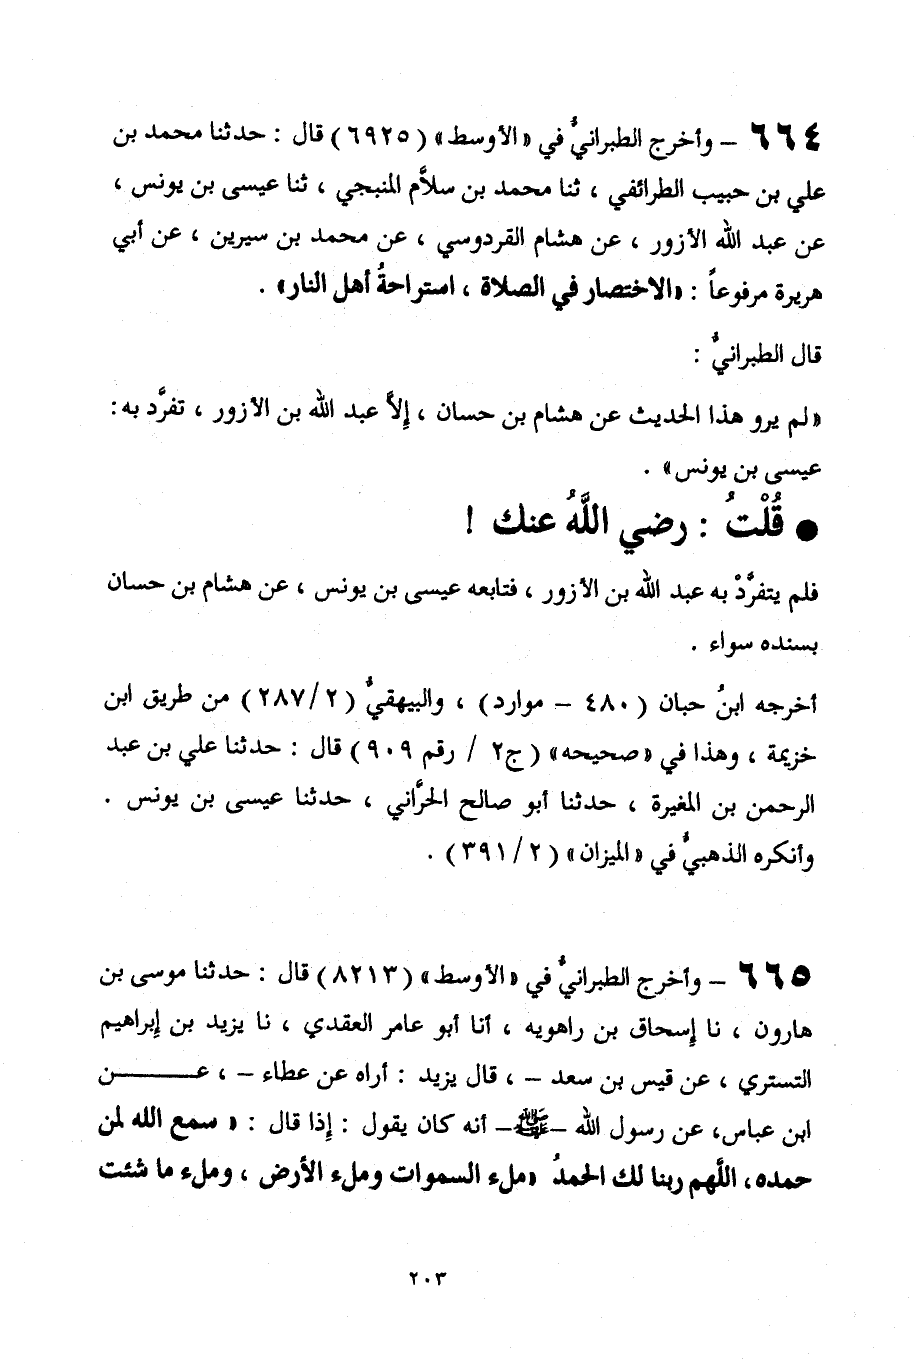 ٦٦٤ – وأخرج الطبرانيُّ في «الأوسط» (٦٩٢٥) قال : حدثنا محمد بن
علي بن حبيب الطرائفي ، ثنا محمد بن سلاَّم المنبجي ، ثنا عيسى بن يونس ،
عن عبد الله الأزور ، عن هشام القردوسي ، عن محمد بن سيرين ، عن أبي
هريرة مرفوعاً : «الاختصار في الصلاة ، استراحةُ أهل النار» .
قال الطبرانيُّ :
«لم يرو هذا الحديث عن هشام بن حسان ، إلاَّ عبد الله بن الأزور ، تفرَّد به :
عيسى بن يونس» .
● قُلْتُ : رضي اللَّهُ عنك !
فلم يتفرَّدْ به عبد الله بن الأزور ، فتابعه عيسى بن يونس ، عن هشام بن حسان
بسنده سواء .
أخرجه ابنُ حبان (٤٨٠ – موارد) ، والبيهقيُّ (٢/٢٨٧) من طريق ابن
خزيمة ، وهذا في «صحيحه» (ج٢ / رقم ٩٠٩) قال : حدثنا علي بن عبد
الرحمن بن المغيرة ، حدثنا أبو صالح الحرَّاني ، حدثنا عيسى بن يونس .
وأنكره الذهبيُّ في «الميزان» (٢/٣٩١) .
٦٦٥ – وأخرج الطبرانيُّ في «الأوسط» (٨٢١٣) قال : حدثنا موسى بن
هارون ، نا إسحاق بن راهويه ، أنا أبو عامر العقدي ، نا يزيد بن إبراهيم
التستري ، عن قيس بن سعد – ، قال يزيد : أراه عن عطاء – ، عـــــن
ابن عباس، عن رسول الله –ﷺ– أنه كان يقول : إذا قال : « سمع الله لمن
حمده، اللَّهم ربنا لك الحمدُ «ملء السموات وملء الأرض ، وملء ما شئت
٢٠٣